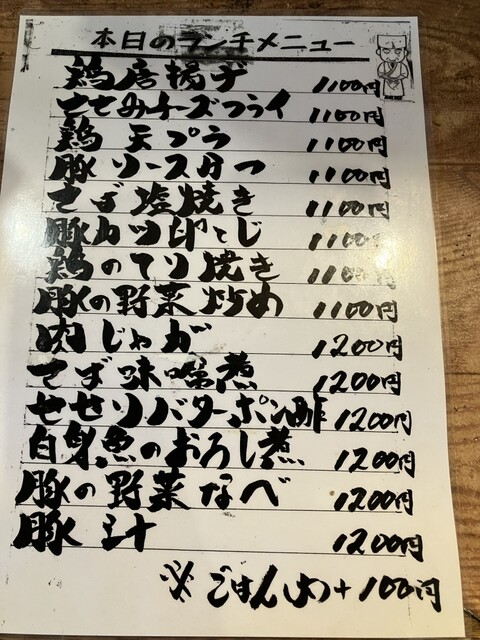 本日のランチメニュー
鶏唐揚げ 1100円
ささみチーズフライ 1100円
鶏天プラ 1100円
豚ソースカツ 1100円
さば塩焼き 1100円
豚カツ卵とじ 1100円
鶏のてり焼き 1100円
豚の野菜炒め 1100円
肉じゃが 1200円
さば味噌煮 1200円
せせりバターポン酢 1200円
白身魚のおろし煮 1200円
豚の野菜なべ 1200円
豚汁 1200円
※ごはん大+100円